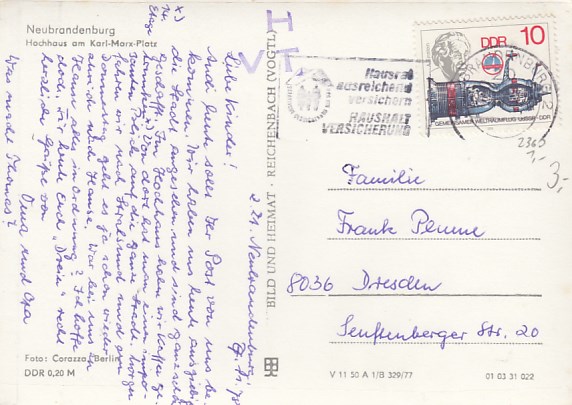 Neubrandenburg
Hochhaus am Karl-Marx-Platz
z. Zt. Neubrandenburg
Liebe Kinder!
Auch heute sollt Ihr Post von uns be-
kommen. Wir haben uns heute ausgiebig
die Stadt angesehen und sind ganz schön
geschafft. Im Hochhaus haben wir Kaffee ge-
trunken x). Von dort hat man einen impo-
santen Blick auf die ganze Stadt. Morgen
fahren wir nach Stralsund und am
Donnerstag geht es ja schon wieder
ab nach Hause. War bei uns im
Hause alles in Ordnung? Ich hoffe
doch. Für heute Euch "Dreien" recht
herzliche Grüße von
Oma und Opa
Was macht Thomas?
x)
Etage
Foto: Corazza, Berlin
DDR 0,20 M
BILD UND HEIMAT · REICHENBACH (VOGTL)
V 11 50 A 1/B 329/77
01 03 31 022
I
V T
Hausrat
ausreichend
versichern
HAUSHALT
VERSICHERUNG
DDR 10
GEMEINSAMER WELTRAUMFLUG UdSSR-DDR
2363
3,-
3,-
Familie
Frank Plume
8036 Dresden
Senftenberger Str. 20